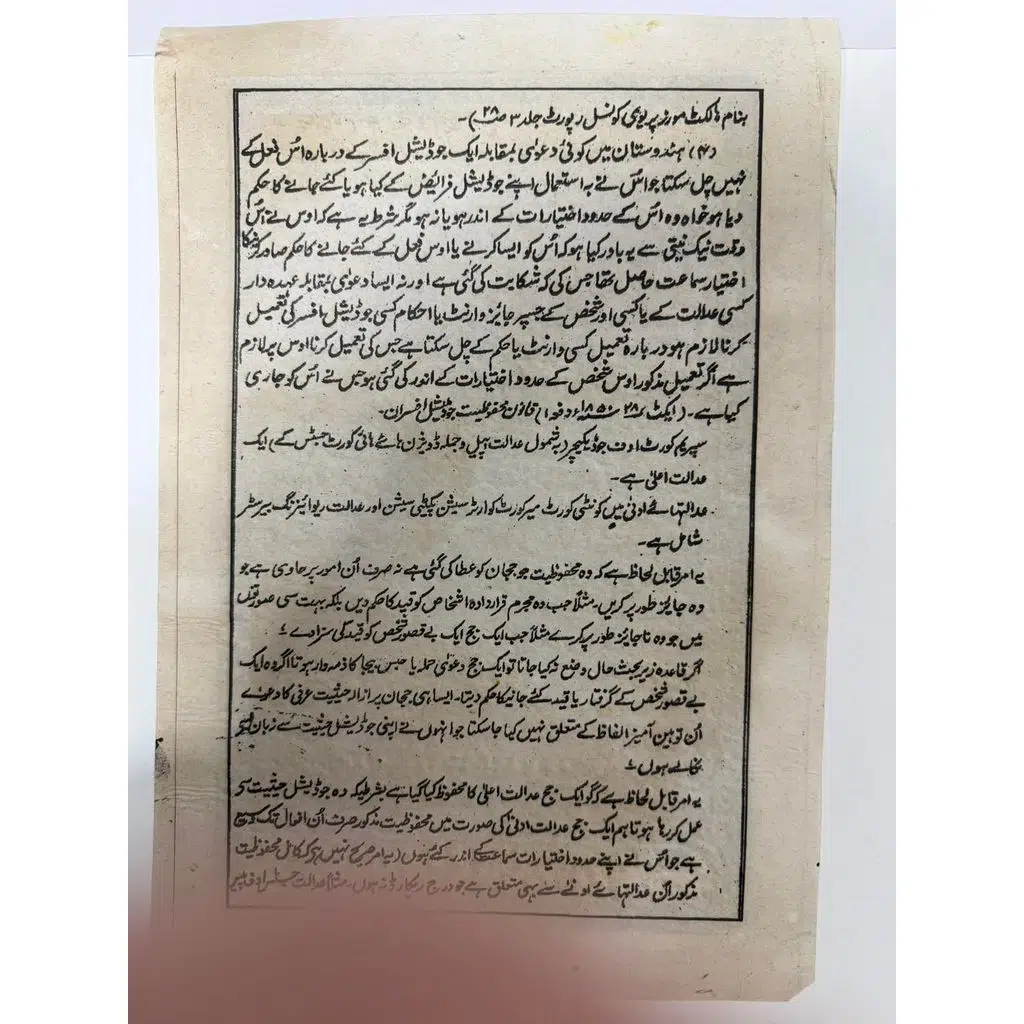 بنام ہالکٹ مورز پریوی کونسل رپورٹ جلد ۳ صفہ ۲۸) ۔
(۴) ہندوستان میں کوئی دعویٰ بمقابلہ ایک جوڈیشل افسر کے دربارہ اُس فعل کے
نہیں چل سکتا جو اُس نے بہ استعمال اپنے جوڈیشل فرائض کے کیا ہو یا کئے جانے کا حکم
دیا ہو خواہ وہ اُس کے حدود اختیارات کے اندر ہو یا نہ ہو مگر شرط یہ ہے کہ اوس نے اُس
وقت نیک نیتی سے یہ باور کیا ہو کہ اُس کو ایسا کرنے یا اوس فعل کے کئے جانے کا حکم صادر کرنیکا
اختیار سماعت حاصل تھا جس کی کہ شکایت کی گئی ہے اور نہ ایسا دعویٰ بمقابلہ عہدہ دار
کسی عدالت کے یا کسی اور شخص کے جسپر جائز وارنٹ یا احکام کسی جوڈیشل افسر کی تعمیل
کرنا لازم ہو دربارہ تعمیل کسی وارنٹ یا حکم کے چل سکتا ہے جس کی تعمیل کرنا اوس پر لازم
ہے اگر تعمیل مذکور اوس شخص کے حدود اختیارات کے اندر کی گئی ہو جس نے اُس کو جاری
کیا ہے ۔ (ایکٹ ۲۸ ۱۸۵۰ء دفعہ ۱) قانون محفوظیت جوڈیشل افسران ۔
سپریم کورٹ اوف جوڈیکیچر (بہ شمول عدالت اپیل و جملہ ڈویژن ہائے ہائی کورٹ جسٹس کے) ایک
عدالت اعلیٰ ہے ۔
عدالتہائے ادنیٰ میں کونٹی کورٹ میر کورٹ کوارٹر سیشن پیٹی سیشن اور عدالت ریوائیزنگ بیرسٹر
شامل ہے ۔
یہ امر قابل لحاظ ہے کہ وہ محفوظیت جو ججان کو عطا کی گئی ہے نہ صرف اُن امور پر حاوی ہے جو
وہ جائز طور پر کریں ۔ مثلاً جب وہ مجرم قرار دادہ اشخاص کو قید کا حکم دیں بلکہ بہت سی صورتوں
میں جو وہ ناجائز طور پر کرے مثلاً جب ایک جج ایک بے قصور شخص کو قید کی سزا دے ؛
اگر قاعدہ زیر بحث حال وضع نہ کیا جاتا تو ایک جج دعویٰ حملہ یا حبس بیجا کا ذمہ دار ہوتا اگر وہ ایک
بے قصور شخص کے گرفتار یا قید کئے جانیکا حکم دیتا ۔ ایسا ہی ججان پر ازالہ حیثیت عرفی کا دعوے
اُن توہین آمیز الفاظ کے متعلق نہیں کیا جا سکتا جو انہوں نے اپنی جوڈیشل حیثیت سے زبان سے
نکالے ہوں ؛
یہ امر قابل لحاظ ہے کہ گو ایک جج عدالت اعلیٰ کا محفوظ کیا گیا ہے بشرطیکہ وہ جوڈیشل حیثیت سے
عمل کر رہا ہو تاہم ایک جج عدالت ادنیٰ کی صورت میں محفوظیت مذکور صرف اُن افعال تک وسیع
ہے جو اُس نے اپنے حدود اختیارات سماعت کے اندر کئے ہوں (یہ امر صحیح نہیں ہے کہ کامل محفوظیت
مذکور اُن عدالتہائے ادنےٰ سے یہی متعلق ہے جو درج ریکارڈ نہ ہوں ۔ مثلاً عدالت